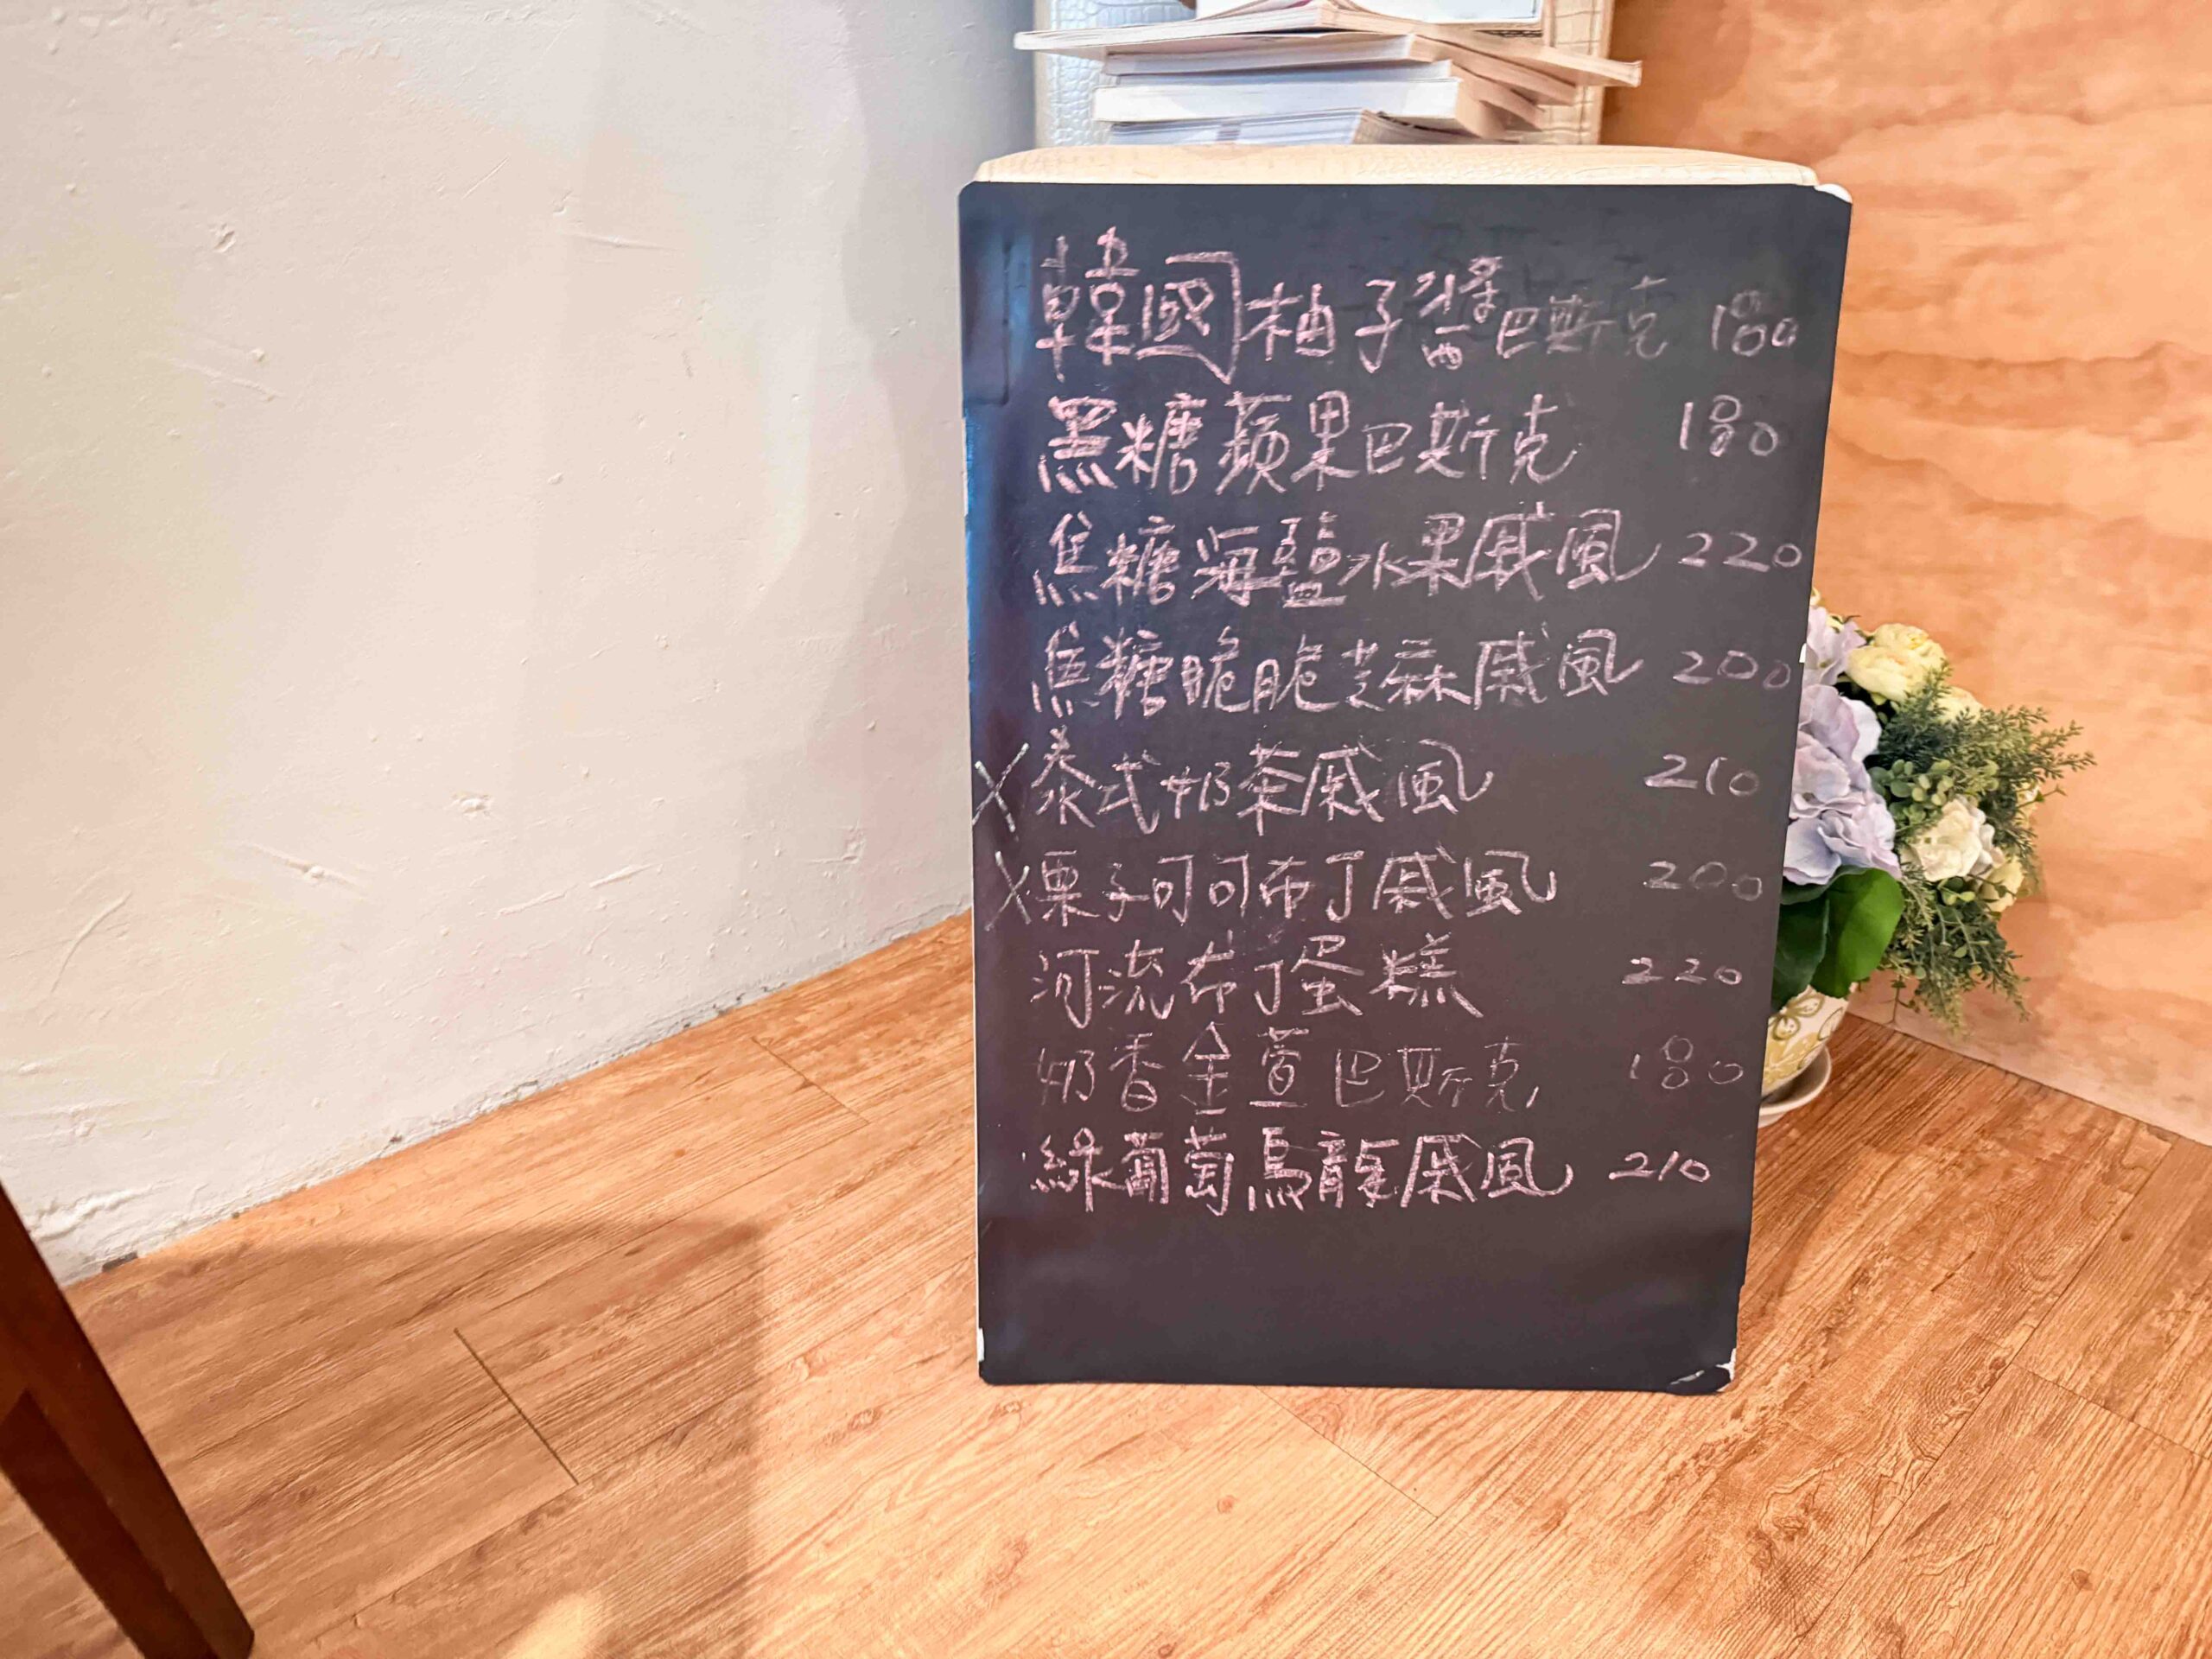 韓國柚子醬巴斯克 180
黑糖蘋果巴斯克 180
焦糖海鹽水果戚風 220
焦糖脆脆芝麻戚風 200
X泰式奶茶戚風 210
X栗子可可布丁戚風 200
河流布丁蛋糕 220
奶香金萱巴斯克 180
綠葡萄烏龍戚風 210